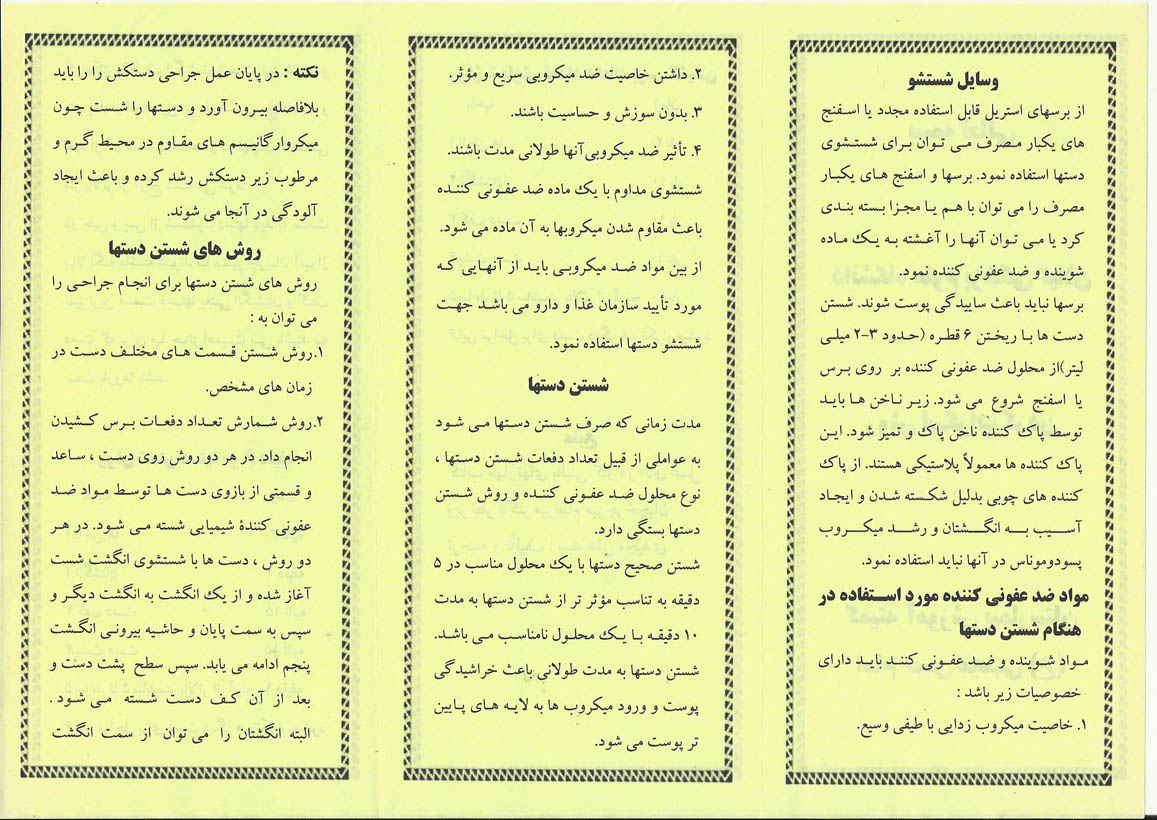 وسایل شستشو
از برسهای استریل قابل استفاده مجدد یا اسفنج
های یکبار مصرف می توان برای شستشوی
دستها استفاده نمود. برسها و اسفنج های یکبار
مصرف را می توان با هم یا مجزا بسته بندی
کرد یا می توان آنها را آغشته به یک ماده
شوینده و ضد عفونی کننده نمود.
برسها نباید باعث ساییدگی پوست شوند. شستن
دست ها با ریختن ۶ قطره (حدود ۳-۲ میلی
لیتر)از محلول ضد عفونی کننده بر روی برس
یا اسفنج شروع می شود. زیر ناخن ها باید
توسط پاک کننده ناخن پاک و تمیز شود. این
پاک کننده ها معمولاً پلاستیکی هستند. از پاک
کننده های چوبی بدلیل شکسته شدن و ایجاد
آسیب به انگشتان و رشد میکروب
پسودوموناس در آنها نباید استفاده نمود.
مواد ضد عفونی کننده مورد استفاده در
هنگام شستن دستها
مواد شوینده و ضد عفونی کنند باید دارای
خصوصیات زیر باشد :
۱. خاصیت میکروب زدایی با طیفی وسیع.
۲. داشتن خاصیت ضد میکروبی سریع و مؤثر.
۳. بدون سوزش و حساسیت باشند.
۴. تأثیر ضد میکروبی‌آنها طولانی مدت باشند.
شستشوی مداوم با یک ماده ضد عفونی کننده
باعث مقاوم شدن میکروبها به آن ماده می شود.
از بین مواد ضد میکروبی باید از آنهایی که
مورد تأیید سازمان غذا و دارو می باشد جهت
شستشو دستها استفاده نمود.
شستن دستها
مدت زمانی که صرف شستن دستها می شود
به عواملی از قبیل تعداد دفعات شستن دستها ،
نوع محلول ضد عفونی کننده و روش شستن
دستها بستگی دارد.
شستن صحیح دستها با یک محلول مناسب در ۵
دقیقه به تناسب مؤثر تر از شستن دستها به مدت
۱۰ دقیقه با یک محلول نامناسب می باشد.
شستن دستها به مدت طولانی باعث خراشیدگی
پوست و ورود میکروب ها به لایه های پایین
تر پوست می شود.
نکته : در پایان عمل جراحی دستکش را را باید
بلافاصله بیرون آورد و دستها را شست چون
میکروارگانیسم های مقاوم در محیط گرم و
مرطوب زیر دستکش رشد کرده و باعث ایجاد
آلودگی در آنجا می شوند.
روش های شستن دستها
روش های شستن دستها برای انجام جراحی را
می توان به :
۱.روش شستن قسمت های مختلف دست در
زمان های مشخص.
۲.روش شمارش تعداد دفعات برس کشیدن
انجام داد. در هر دو روش روی دست ، ساعد
و قسمتی از بازوی دست ها توسط مواد ضد
عفونی کنندهٔ شیمیایی شسته می شود. در هر
دو روش ، دست ها با شستشوی انگشت شست
آغاز شده و از یک انگشت به انگشت دیگر و
سپس به سمت پایان و حاشیه بیرونی انگشت
پنجم ادامه می یابد. سپس سطح پشت دست و
بعد از آن کف دست شسته می شود .
البته انگشتان را می توان از سمت انگشت